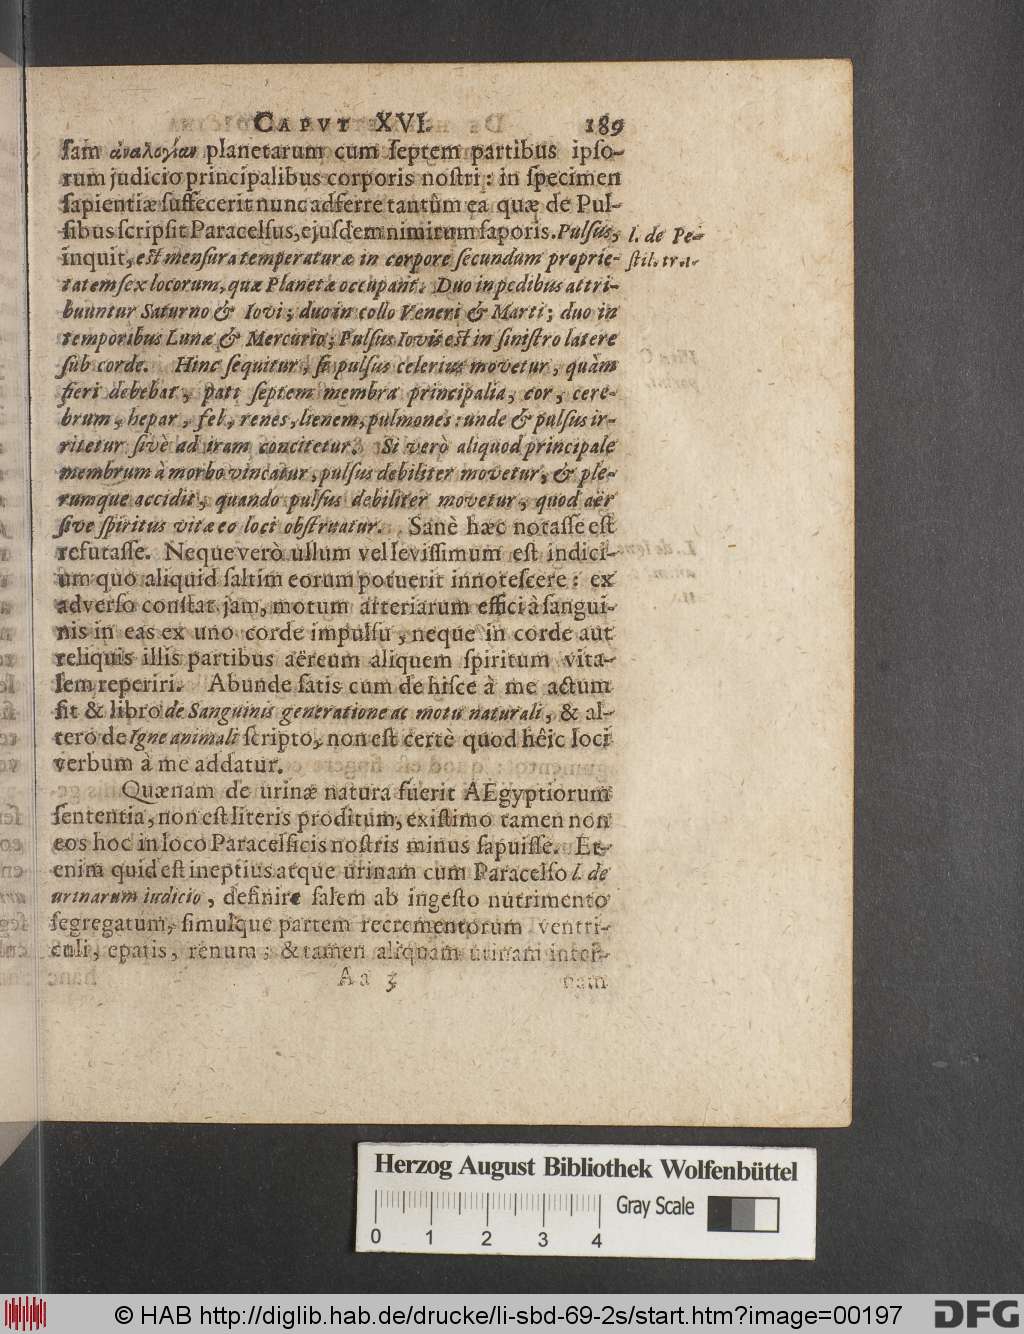 CAPVT XVI. 189
ſam ἀναλογίαν planetarum cum ſeptem partibus ipſo-
rum judicio principalibus corporis noſtri: in ſpecimen
ſapientiæ ſuffecerit nunc adferre tantùm ea quæ de Pul-
ſibus ſcripſit Paracelſus, ejuſdem nimirum ſaporis. Pulſus, l. de Pe-
inquit, eſt menſura temperaturæ in corpore ſecundum proprie- ſtil. tra-
tatem ſex locorum, quæ Planetæ occupant. Duo in pedibus attri-
buuntur Saturno & Iovi; duo in collo Veneri & Marti; duo in
temporibus Lunæ & Mercurio; Pulſus Iovis eſt in ſiniſtro latere
ſub corde. Hinc ſequitur, ſi pulſus celerius movetur, quàm
fieri debebat, pati ſeptem membra principalia, cor, cere-
brum, hepar, fel, renes, lienem, pulmones: unde & pulſus ir-
ritetur ſivè ad iram concitetur. Si verò aliquod principale
membrum à morbo vincatur, pulſus debiliter movetur, & ple-
rumque accidit, quando pulſus debiliter movetur, quod aër
ſive ſpiritus vitæ eo loci obſtruatur. Sanè hæc notaſſe eſt
refutaſſe. Neque verò ullum vel leviſſimum eſt indici-
um quo aliquid ſaltim eorum potuerit innoteſcere: ex
adverſo conſtat jam, motum arteriarum effici à ſangui-
nis in eas ex uno corde impulſu, neque in corde aut
reliquis illis partibus aëreum aliquem ſpiritum vita-
lem reperiri. Abunde ſatis cum de hiſce à me actum
ſit & libro de Sanguinis generatione ac motu naturali, & al-
tero de Igne animali ſcripto, non eſt certè quod hêic loci
verbum à me addatur.
Quænam de urinæ natura fuerit AEgyptiorum
ſententia, non eſt literis proditum, exiſtimo tamen non
eos hoc in loco Paracelſicis noſtris minus ſapuiſſe. Et-
enim quid eſt ineptius atque urinam cum Paracelſo l. de
urinarum iudicio, definire ſalem ab ingeſto nutrimento
ſegregatum, ſimulque partem recrementorum ventri-
culi, epatis, renum; & tamen aliquam urinam inter-
Aa 3 nam
Herzog August Bibliothek Wolfenbüttel
Gray Scale
0 1 2 3 4
© HAB http://diglib.hab.de/drucke/li-sbd-69-2s/start.htm?image=00197
DFG